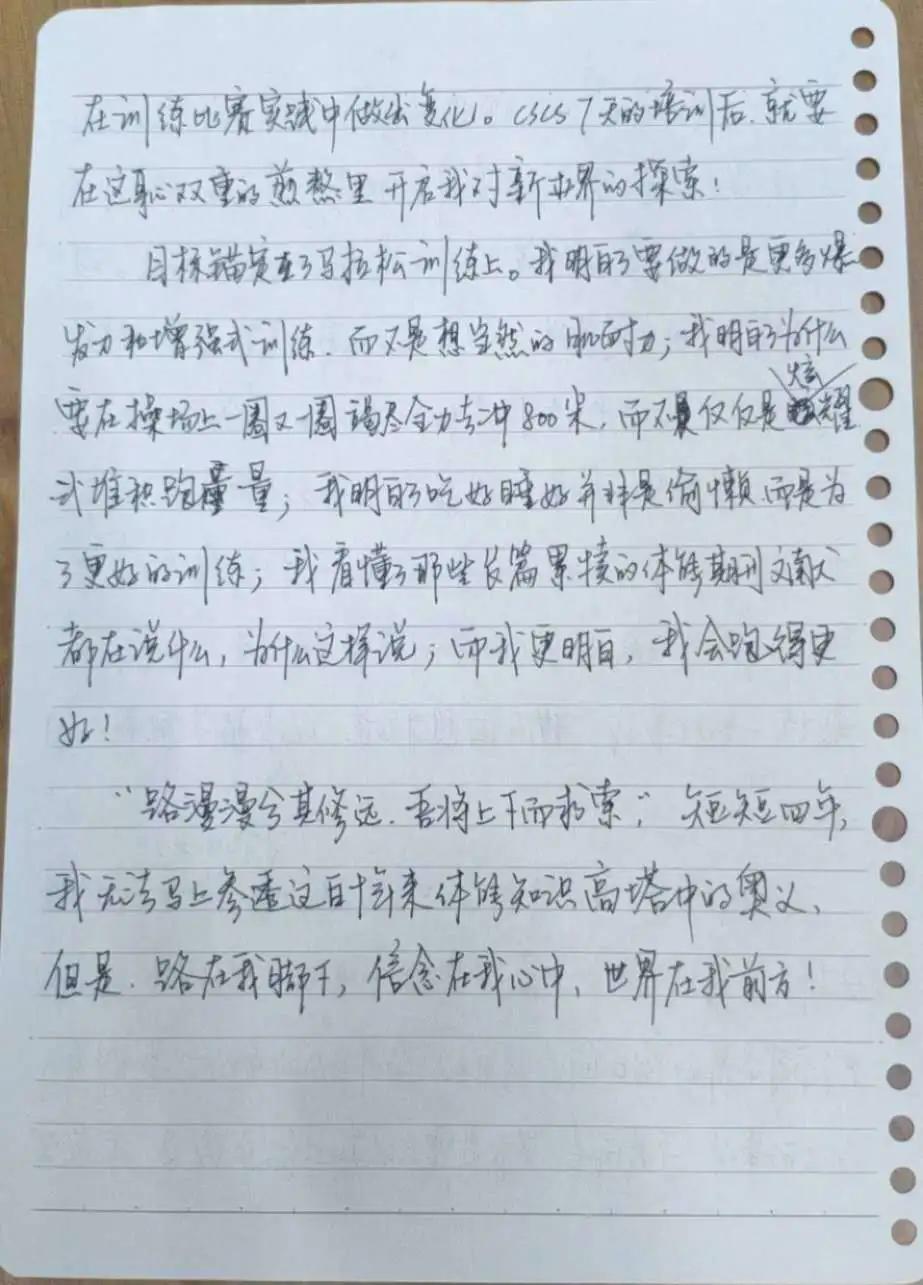 在训练比赛实践中做出变化。CSCS 7天的培训后,就要
在这身心双重的煎熬里开启我对新世界的探索!
目标锚定在了马拉松训练上。我明白了要做的是更多爆
发力和增强式训练,而不是想当然的肌耐力;我明白了为什么
要在操场上一圈又一圈竭尽全力去冲800米,而不是仅仅是炫耀
式堆积跑量;我明白了吃好睡好并非是偷懒而是为
了更好的训练;我看懂了那些长篇累牍的体能期刊文献
都在说什么,为什么这样说;而我更明白,我会跑得更
好!
“路漫漫兮其修远,吾将上下而求索”,短短四年,
我无法马上参透这百十年来体能知识高塔中的奥义,
但是,路在我脚下,信念在我心中,世界在我前方!